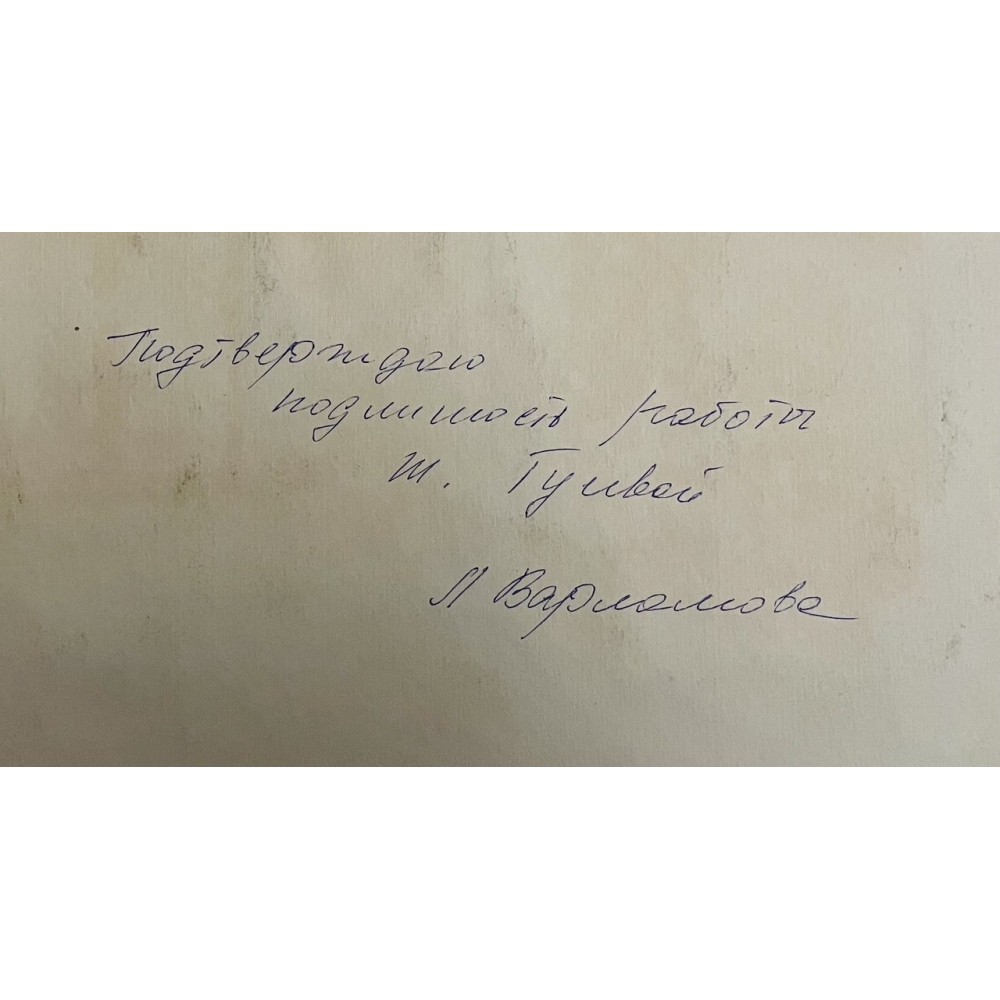 Подтверждаю
подлинность работы
Т. Гулвой
Л Варламова